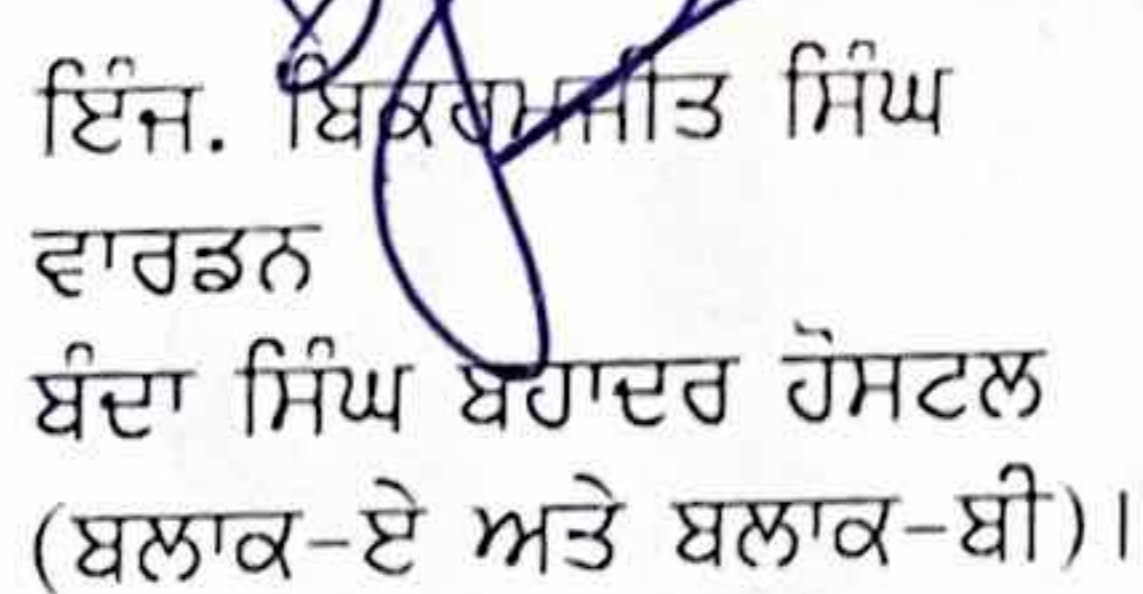 ਇੰਜ. ਬਿਕਰਮਜੀਤ ਸਿੰਘ
ਵਾਰਡਨ
ਬੰਦਾ ਸਿੰਘ ਬਹਾਦਰ ਹੋਸਟਲ
(ਬਲਾਕ-ਏ ਅਤੇ ਬਲਾਕ-ਬੀ)।